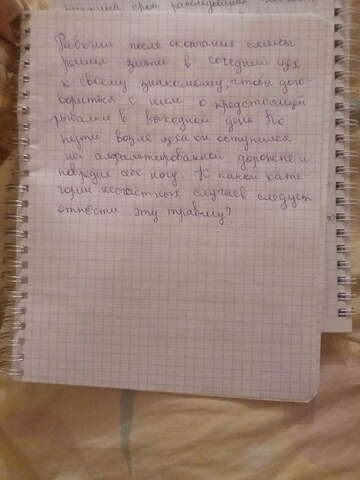 Рабочий после окончания смены
решил зайти в соседний цех
к своему знакомому, чтобы дого-
вориться с ним о предстоящей
рыбалке в выходной день. По
пути возле цеха он оступился
на асфальтированной дорожке и
повредил себе ногу. К какой кате-
гории несчастных случаев следует
отнести эту травму?